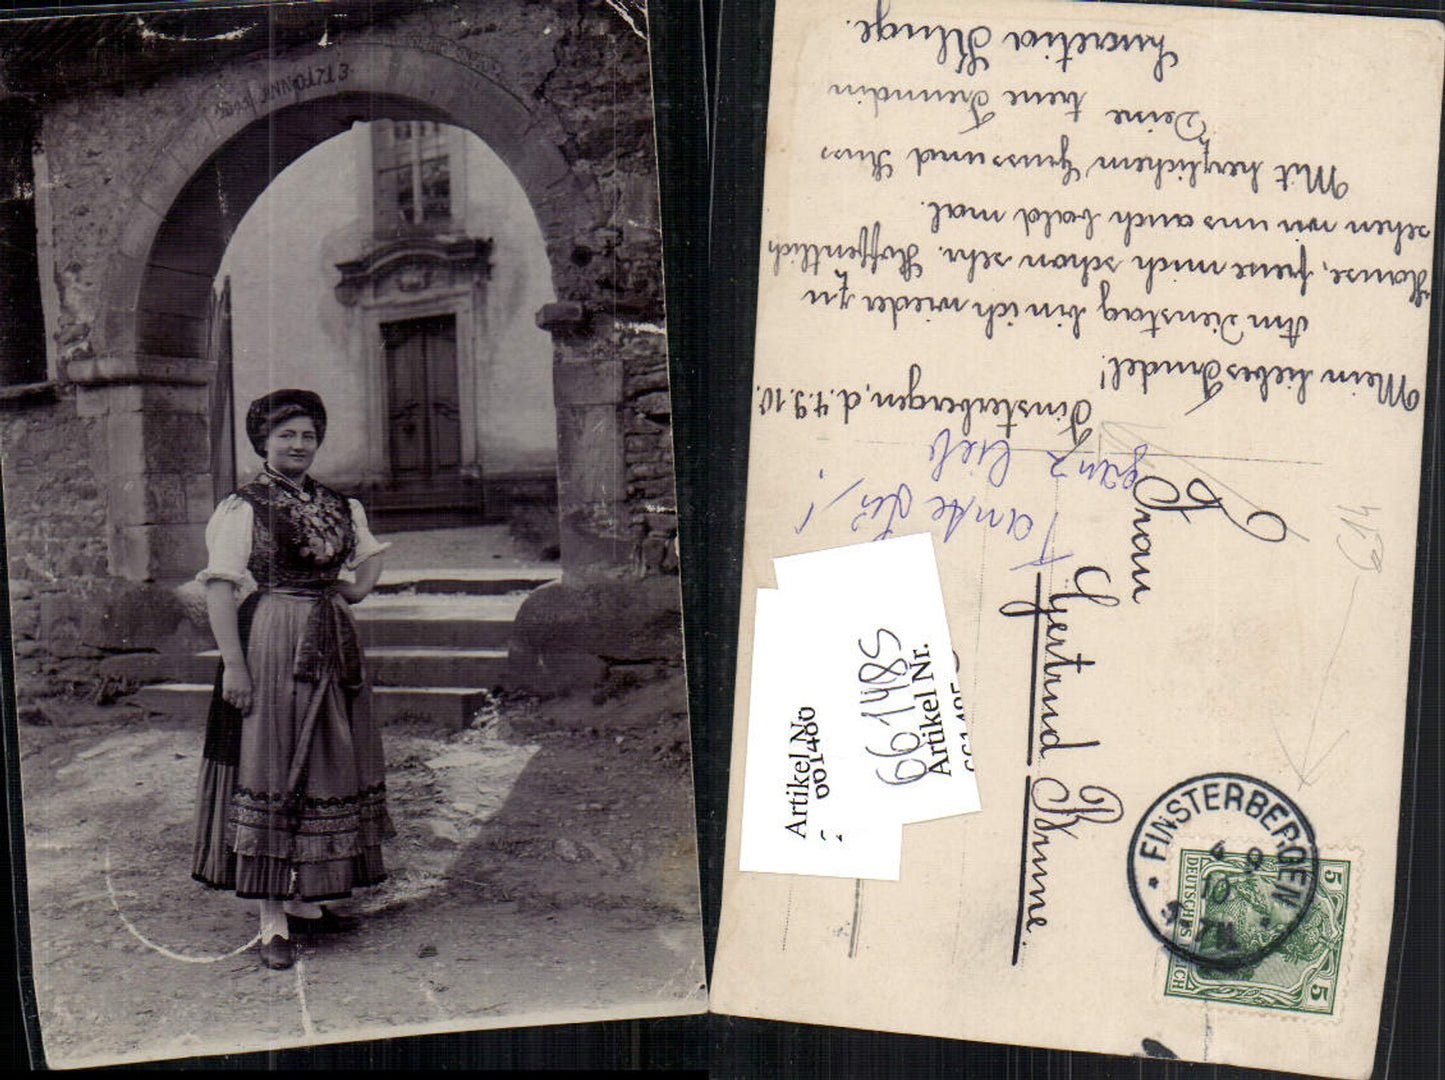 Finsterbergen, d. 4.9.10.
Mein liebes Trudel!
Am Dienstag bin ich wieder zu
Hause, freue mich schon sehr. Hoffentlich
sehen wir uns auch bald mal.
Mit herzlichem Gruss und Kuss
Deine treue Freundin
Lucretia Kluge.
ganz lieb
Tante
Frau
Gertrud Brune.
614
FINSTERBERGEN
4 9
10
7-8N
5 5
DEUTSCHES REICH
Artikel No
661485
Artikel Nr.